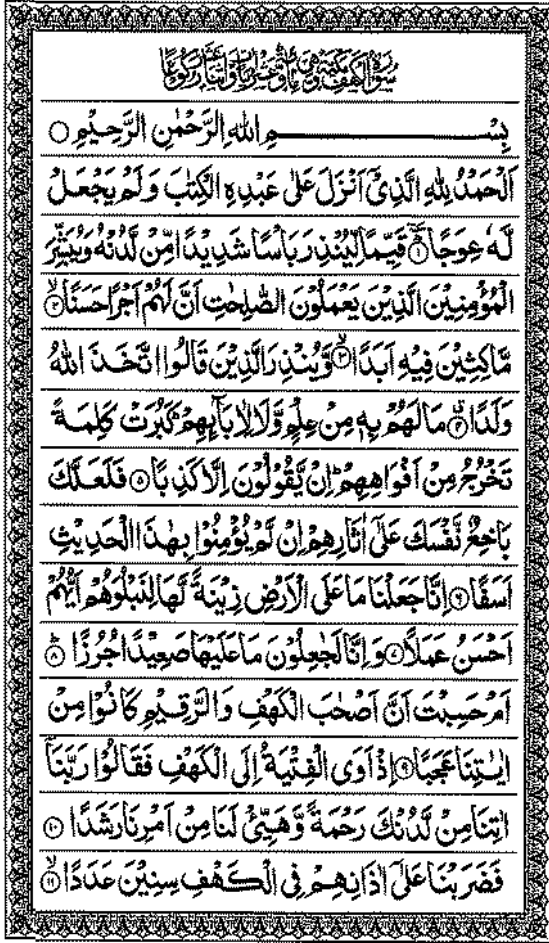 سُوْرَةُ الْكَهْفِ مَكِّيَّةٌ وَّهِيَ مِائَةٌ وَّعَشْرُ اٰيَاتٍ وَّاثْنَا عَشَرَ رُكُوْعًا
بِسْمِ اللّٰهِ الرَّحْمٰنِ الرَّحِيْمِ ۝
اَلْحَمْدُ لِلّٰهِ الَّذِيْٓ اَنْزَلَ عَلٰى عَبْدِهِ الْكِتٰبَ وَلَمْ يَجْعَلْ
لَّهٗ عِوَجًا ۝١ قَيِّمًا لِّيُنْذِرَ بَاْسًا شَدِيْدًا مِّنْ لَّدُنْهُ وَيُبَشِّرَ
الْمُؤْمِنِيْنَ الَّذِيْنَ يَعْمَلُوْنَ الصّٰلِحٰتِ اَنَّ لَهُمْ اَجْرًا حَسَنًا ۝٢
مَّاكِثِيْنَ فِيْهِ اَبَدًا ۝٣ وَّيُنْذِرَ الَّذِيْنَ قَالُوا اتَّخَذَ اللّٰهُ
وَلَدًا ۝٤ مَا لَهُمْ بِهٖ مِنْ عِلْمٍ وَّلَا لِاٰبَآىِٕهِمْ كَبُرَتْ كَلِمَةً
تَخْرُجُ مِنْ اَفْوَاهِهِمْ اِنْ يَّقُوْلُوْنَ اِلَّا كَذِبًا ۝٥ فَلَعَلَّكَ
بَاخِعٌ نَّفْسَكَ عَلٰٓى اٰثَارِهِمْ اِنْ لَّمْ يُؤْمِنُوْا بِهٰذَا الْحَدِيْثِ
اَسَفًا ۝٦ اِنَّا جَعَلْنَا مَا عَلَى الْاَرْضِ زِيْنَةً لَّهَا لِنَبْلُوَهُمْ اَيُّهُمْ
اَحْسَنُ عَمَلًا ۝٧ وَاِنَّا لَجٰعِلُوْنَ مَا عَلَيْهَا صَعِيْدًا جُرُزًا ۝٨
اَمْ حَسِبْتَ اَنَّ اَصْحٰبَ الْكَهْفِ وَالرَّقِيْمِ كَانُوْا مِنْ
اٰيٰتِنَا عَجَبًا ۝٩ اِذْ اَوَى الْفِتْيَةُ اِلَى الْكَهْفِ فَقَالُوْا رَبَّنَآ
اٰتِنَا مِنْ لَّدُنْكَ رَحْمَةً وَّهَيِّئْ لَنَا مِنْ اَمْرِنَا رَشَدًا ۝١٠
فَضَرَبْنَا عَلٰٓى اٰذَانِهِمْ فِي الْكَهْفِ سِنِيْنَ عَدَدًا ۝١١